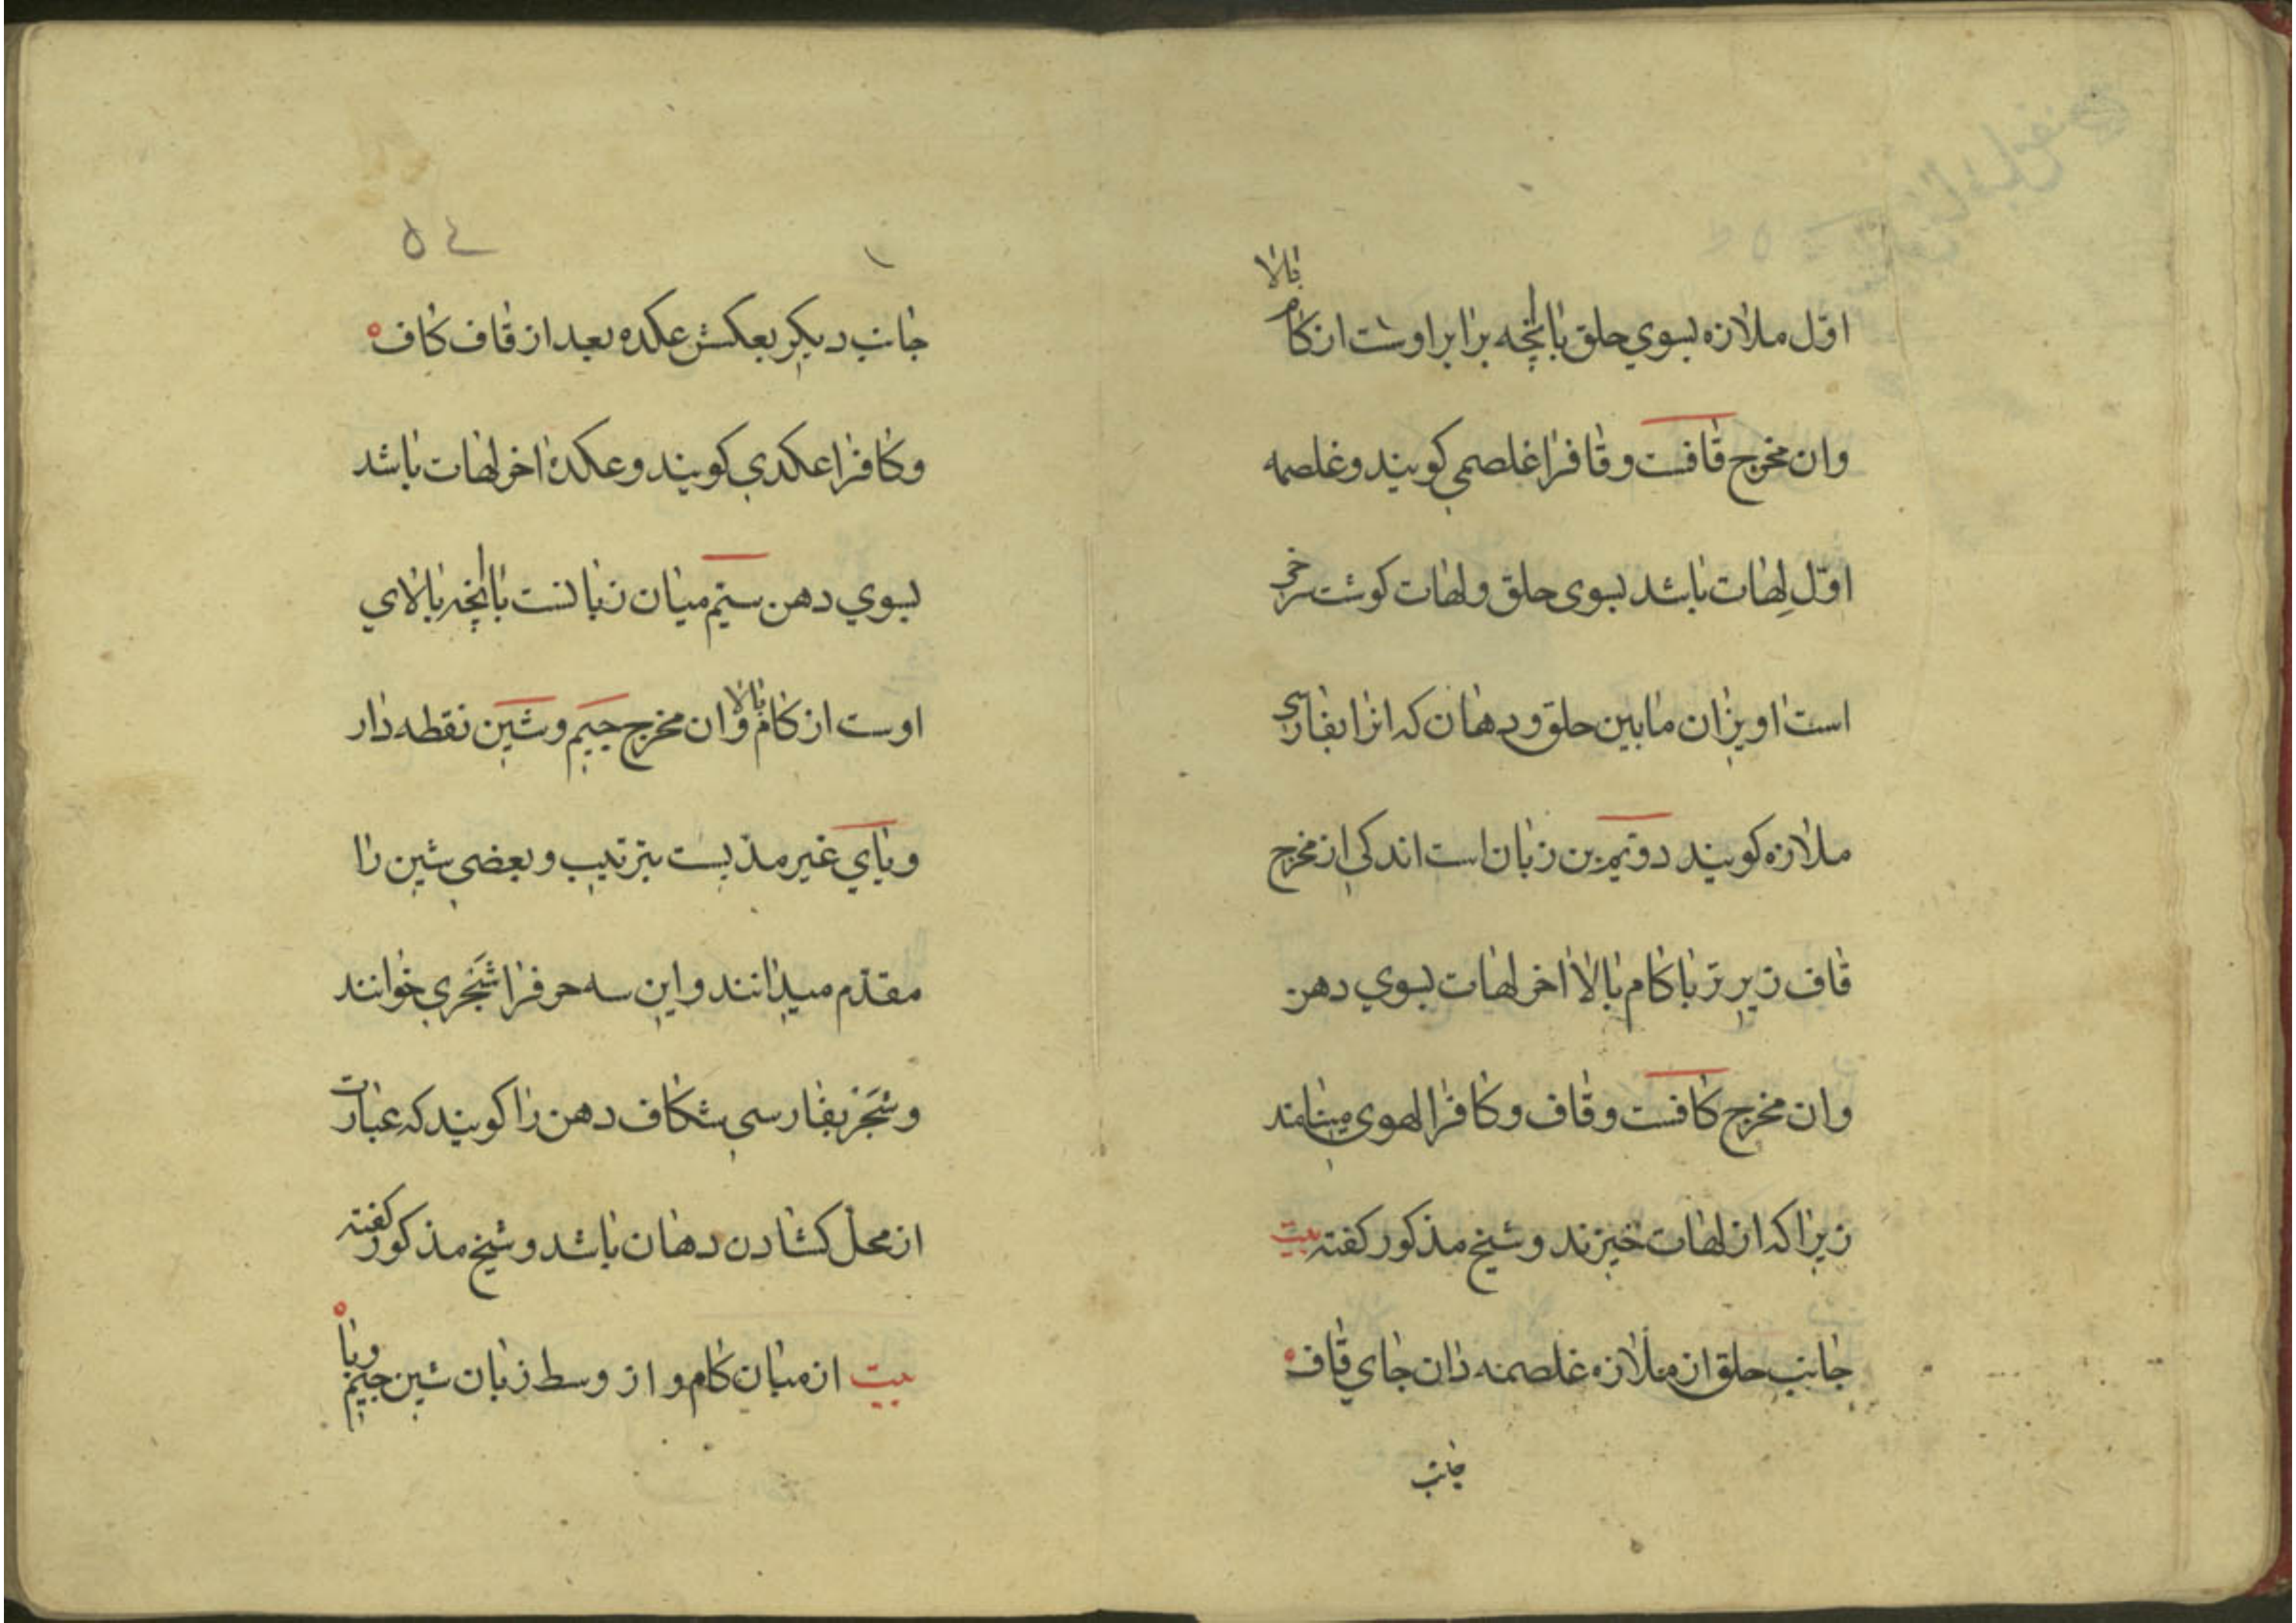 اوّل ملازه بسوي حلق باانچه برابر اوست از كام بالا
وان مخرج قافست و قافرا غلصمي كويند و غلصمه
اوّل لِهات باشد بسوى حلق ولهات كوشت سرخى
است اويزان مابين حلق و دهان كه انرا بفارسى
ملازه كويند دوّيم بن زبان است اندكي از مخرج
قاف زيرتر با كام بالا اخر لهات بسوي دهن
وان مخرج كافست و قاف و كافرا لهوى مينامند
زيرا كه از لهات خيزند و شيخ مذكور كفته بيت
جانب حلق از ملازه غلصمه دان جاي قاف
جانب
۵۴
جانب ديكر بعكسش عكده بعد از قاف كاف
و كافرا عكدي كويند و عكدهٔ اخر لهات باشد
بسوي دهن سيّم ميان زبانست باانچه بالاي
اوست از كام بالا وان مخرج جيم و شين نقطه دار
و ياي غير مديست بترتيب و بعضى شين را
مقدّم ميدانند و اين سه حرفرا شَجْري خوانند
و شَجْر بفارسى شكاف دهن را كويند كه عبارت
از محل كشادن دهان باشد و شيخ مذكور كفته
بيت از ميان كام و از وسط زبان شين جيم ويا